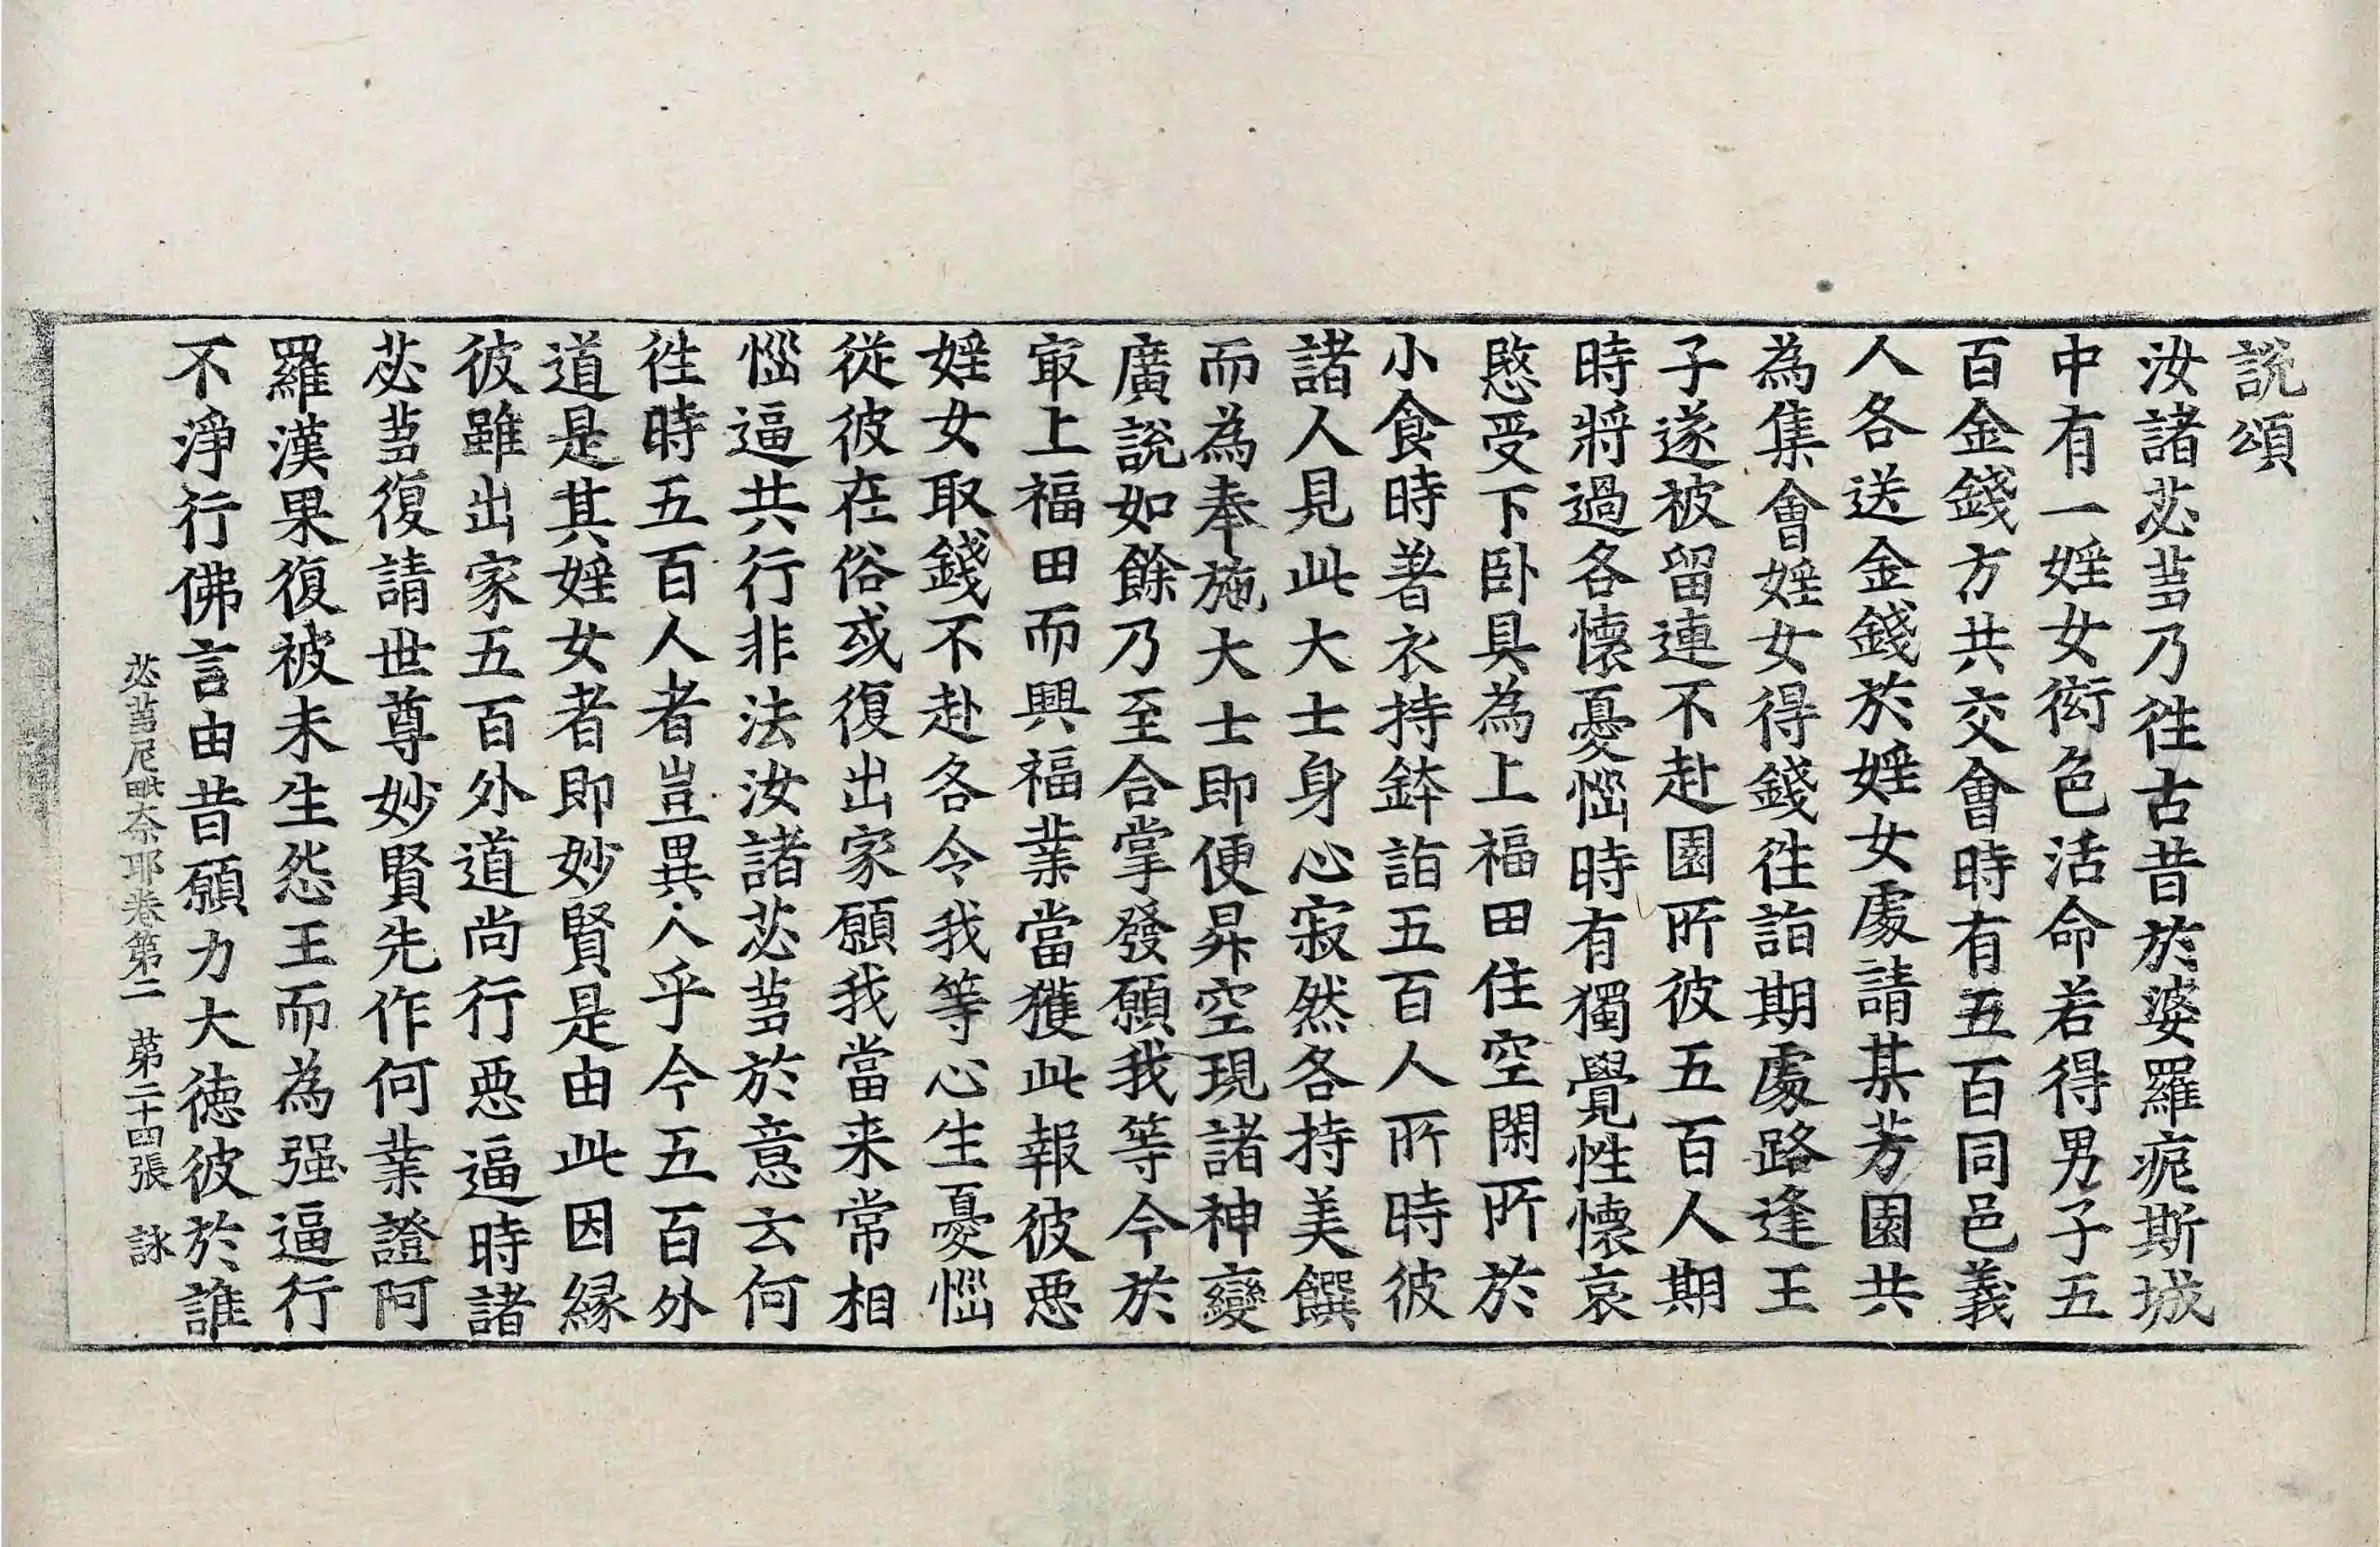 說頌
汝諸苾芻乃往古昔於婆羅痆斯城
中有一婬女衒色活命若得男子五
百金錢方共交會時有五百同邑義
人各送金錢於婬女處請其芳園共
為集會婬女得錢往詣期處路逢王
子遂被留連不赴園所彼五百人期
時將過各懷憂惱時有獨覺性懷哀
愍受下卧具為上福田住空閑所於
小食時著衣持鉢詣五百人所時彼
諸人見此大士身心寂然各持美饌
而為奉施大士即便昇空現諸神變
廣說如餘乃至合掌發願我等今於
冣上福田而興福業當獲此報彼惡
婬女取錢不赴各令我等心生憂惱
從彼在俗或復出家願我當来常相
惱逼共行非法汝諸苾芻於意云何
往時五百人者豈異人乎今五百外
道是其婬女者即妙賢是由此因縁
彼雖出家五百外道尚行惡逼時諸
苾芻復請世尊妙賢先作何業證阿
羅漢果復被未生怨王而為强逼行
不淨行佛言由昔願力大德彼於誰
苾芻尼毗奈耶卷第二 苐二十四張 詠